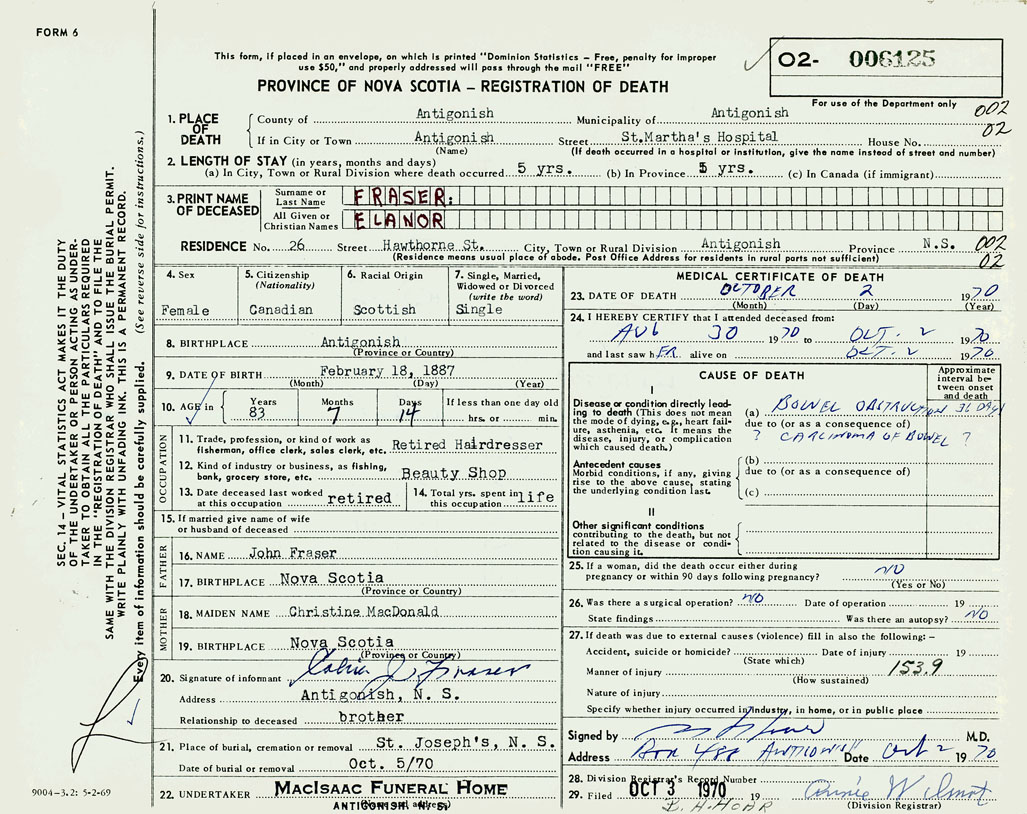 FORM 6
This form, if placed in an envelope, on which is printed "Dominion Statistics – Free, penalty for improper
use $50," and properly addressed will pass through the mail "FREE"
PROVINCE OF NOVA SCOTIA – REGISTRATION OF DEATH
02- 006125
For use of the Department only
002
02
1. PLACE OF DEATH
County of Antigonish Municipality of Antigonish
If in City or Town Antigonish Street St.Martha's Hospital House No.
(Name) (If death occurred in a hospital or institution, give the name instead of street and number)
2. LENGTH OF STAY (in years, months and days)
(a) In City, Town or Rural Division where death occurred 5 yrs. (b) In Province 5 yrs. (c) In Canada (if immigrant)
3. PRINT NAME OF DECEASED
Surname or Last Name FRASER:
All Given or Christian Names ELANOR
RESIDENCE No. 26 Street Hawthorne St. City, Town or Rural Division Antigonish Province N.S. 002
(Residence means usual place of abode. Post Office Address for residents in rural parts not sufficient) 02
4. Sex
Female
5. Citizenship
(Nationality)
Canadian
6. Racial Origin
Scottish
7. Single, Married,
Widowed or Divorced
(write the word)
Single
8. BIRTHPLACE Antigonish
(Province or Country)
9. DATE OF BIRTH February 18, 1887
(Month) (Day) (Year)
10. AGE in Years 83 Months 7 Days 14 If less than one day old
hrs. or min.
OCCUPATION
11. Trade, profession, or kind of work as
fisherman, office clerk, sales clerk, etc. Retired Hairdresser
12. Kind of industry or business, as fishing,
bank, grocery store, etc. Beauty Shop
13. Date deceased last worked
at this occupation retired
14. Total yrs. spent in
this occupation life
15. If married give name of wife
or husband of deceased
FATHER
16. NAME John Fraser
17. BIRTHPLACE Nova Scotia
(Province or Country)
MOTHER
18. MAIDEN NAME Christine MacDonald
19. BIRTHPLACE Nova Scotia
(Province or Country)
20. Signature of informant J. Fraser
Address Antigonish, N. S.
Relationship to deceased brother
21. Place of burial, cremation or removal St. Joseph's, N. S.
Date of burial or removal Oct. 5/70
22. UNDERTAKER MacIsaac Funeral Home
ANTIGONISH N. S.
MEDICAL CERTIFICATE OF DEATH
23. DATE OF DEATH OCTOBER 2 1970
(Month) (Day) (Year)
24. I HEREBY CERTIFY that I attended deceased from:
AUG 30 1970 to OCT. 2 1970
and last saw hER alive on OCT. 2 1970
CAUSE OF DEATH
Approximate
interval be-
tween onset
and death
I
Disease or condition directly lead-
ing to death (This does not
mean
the mode of dying, e.g., heart fail-
ure, asthenia, etc. It means the
disease, injury, or complication
which caused death.)
(a) BOWEL OBSTRUCTION 31 DAYS
due to (or as a consequence of)
? CARCINOMA OF BOWEL ?
Antecedent causes
Morbid conditions, if any, giving
rise to the above cause, stating
the underlying condition last.
(b)
due to (or as a consequence of)
(c)
II
Other significant conditions
contributing to the death, but not
related to the disease or condi-
tion causing it.
25. If a woman, did the death occur either during
pregnancy or within 90 days following pregnancy? NO
(Yes or No)
26. Was there a surgical operation? NO Date of operation 19
State findings Was there an autopsy? NO
27. If death was due to external causes (violence) fill in also the following: –
Accident, suicide or homicide? Date of injury 19
(State which)
Manner of injury 153.9
(How sustained)
Nature of injury
Specify whether injury occurred in industry, in home, or in public place
Signed by M.D.
Address Box 488 Date Oct 2 1970
28. Division Registrar's Record Number
29. Filed OCT 3 1970 19 Connie Wilmot
B. A. HOAR (Division Registrar)
SEC. 14 – VITAL STATISTICS ACT MAKES IT THE DUTY
OF THE UNDERTAKER OR PERSON ACTING AS UNDER-
TAKER TO OBTAIN ALL THE PARTICULARS REQUIRED
IN THE "REGISTRATION OF DEATH" AND TO FILE THE
SAME WITH THE DIVISION REGISTRAR WHO SHALL ISSUE THE BURIAL PERMIT.
WRITE PLAINLY WITH UNFADING INK. THIS IS A PERMANENT RECORD.
Every item of information should be carefully supplied. (See reverse side for instructions.)
9004-3.2: 5-2-69